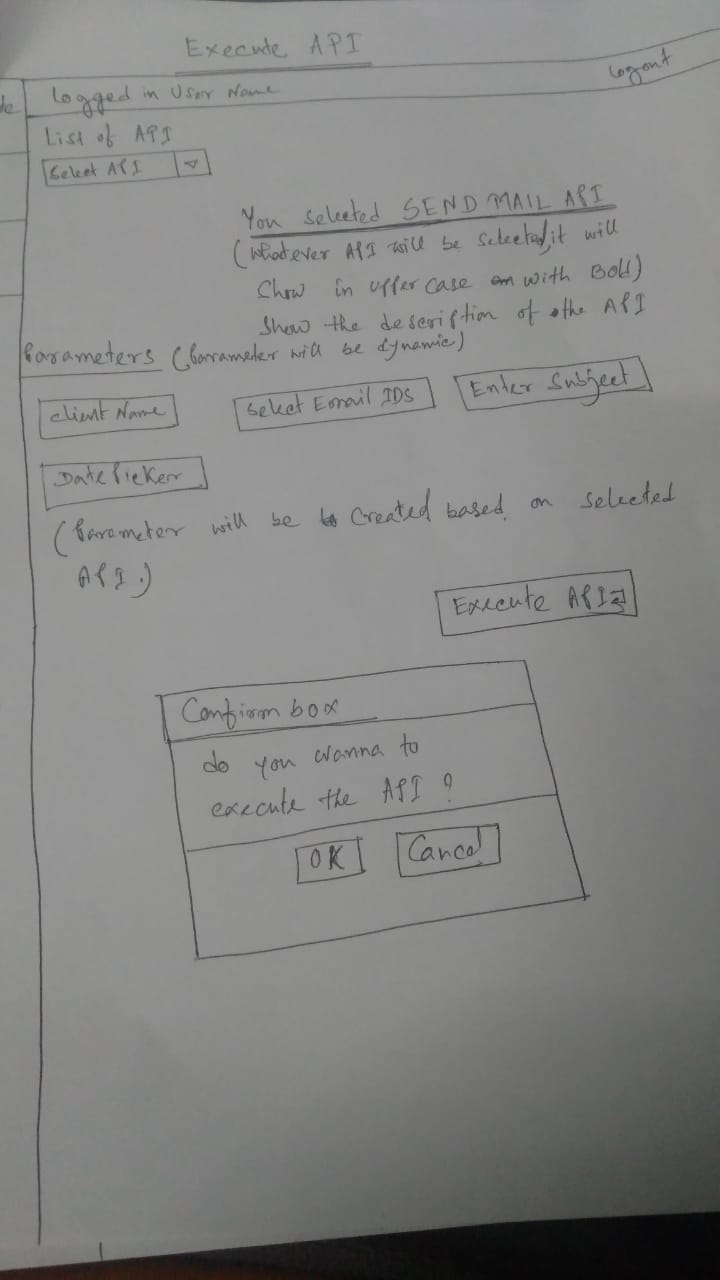 Execute API
logout
logged in User Name
List of API
Select API
You selected SEND MAIL API
(Whatever API will be selected, it will
Show in upper case with Bold)
Show the description of the API
Parameters (Parameter will be dynamic)
Client Name
Select Email IDS
Enter Subject
Date Picker
(Parameter will be Created based on selected
API.)
Execute API
Confirm box
do you wanna to
execute the API ?
OK
Cancel